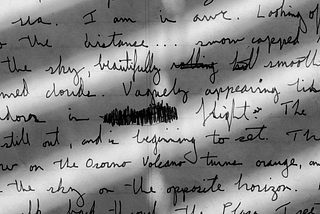 sea. I am in awe. Looking of
the distance... snow capped
the sky, beautifully smooth
med clouds. Vaguely appearing like
in flight? The
still out, and is beginning to set. Th
on the Osorno Volcano turne orange, an
the sky on the opposite horizon.
back